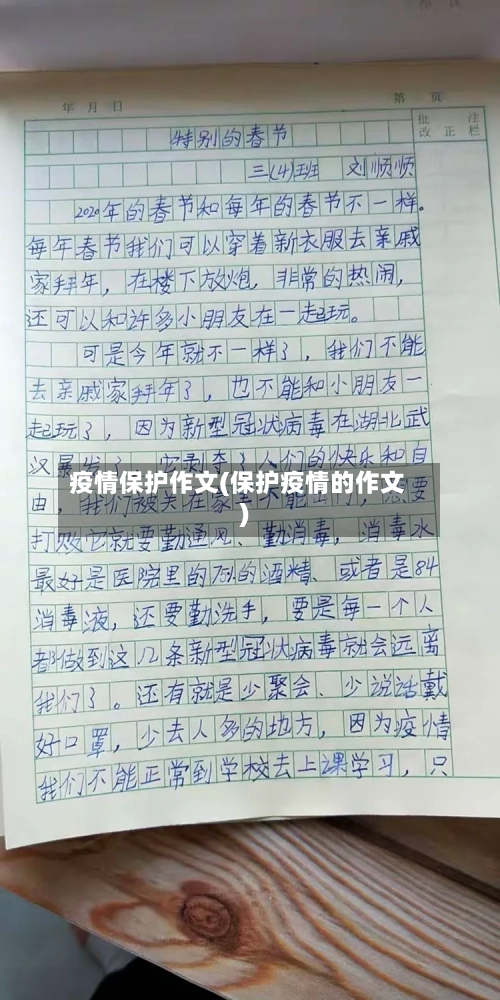 年 月 日
第 页
批 注
改 正 栏
特别的春节
三(4)班 刘顺顺
2020年的春节和每年的春节不一样。
每年春节我们可以穿着新衣服去亲戚
家拜年，在楼下放炮，非常的热闹，
还可以和许多小朋友在一起玩。
可是今年就不一样了，我们不能
去亲戚家拜年了，也不能和小朋友一
起玩了，因为新型冠状病毒在湖北武
汉暴发了，它剥夺了人们的快乐和自
疫情保护作文(保护疫情的作文
)
由，我们被关在家里不能出门，想要
打败它就要勤通风、勤消毒，消毒水
最好是医院里的75%的酒精、或者是84
消毒液，还要勤洗手，要是每一个人
都做到这几条新型冠状病毒就会远离
我们了。还有就是少聚会、少说话戴
好口罩，少去人多的地方，因为疫情
我们不能正常到学校去上课学习，只